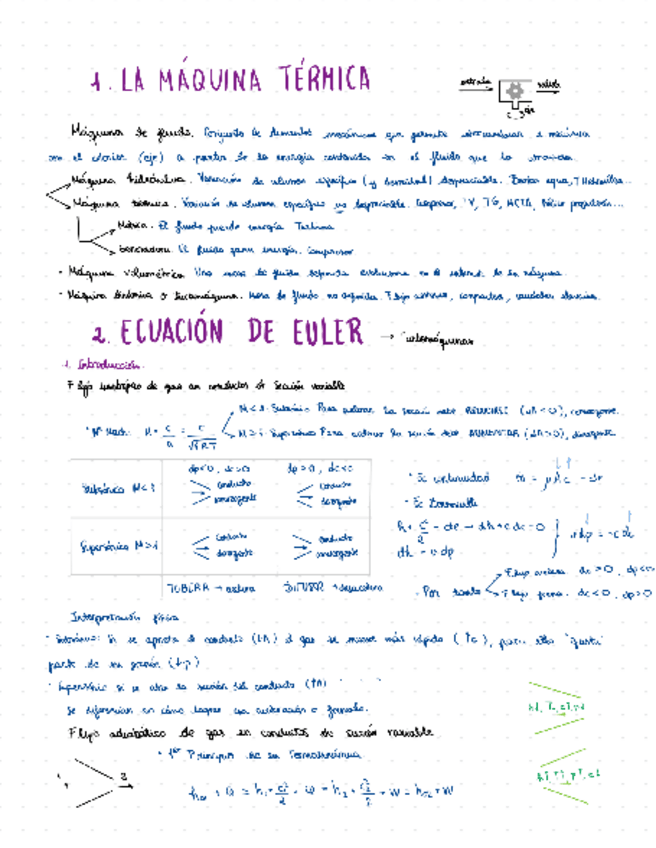 1. LA MÁQUINA TÉRMICA
entrada salida
eje
Máquina de fluido. Conjunto de elementos mecánicos que permite intercambiar e. mecánica
con el exterior (eje) a partir de la energía contenida en el fluido que la
Máquina hidráulica. Variación de volumen específico (y densidad) despreciable. Bomba agua, T Hidráulica...
Máquina térmica. Variación de volumen específico no despreciable. Compresor, TV, TG, MCIA, propulsión...
Motora. El fluido pierde energía. Turbina
Generadora. El fluido gana energía. Compresor
- Máquina volumétrica. Una masa de fluido definida evoluciona en el interior de la máquina.
- Máquina dinámica o turbomáquina. Masa de fluido no definida. Flujo continuo,
2. ECUACIÓN DE EULER → Turbomáquinas
1. Introducción.
Flujo isentrópico de gas en conductos de sección variable
M<1. Subsónico. Para acelerar la sección debe REDUCIRSE (dA<0), convergente.
· Nº Mach: M = c/a = c/√γRT
M>1. Supersónico. Para acelerar la sección debe AUMENTAR (dA>0), divergente.
dp<0, dc>0 dp>0, dc<0
Subsónico M<1 conducto convergente conducto divergente
· Ec continuidad
· Ec Bernoulli
Supersónico M>1 conducto divergente conducto convergente
TOBERA → acelera DIFUSOR → desacelera
· Por tanto Flujo acelera dc>0, dp<0
Flujo frena. dc<0, dp>0
Interpretación física
· Subsónico: Si se aprieta el conducto (↓A) el gas se mueve más rápido (↑c), para ello "gasta"
parte de su presión (↓p)
· Supersónico si se abre la sección del conducto (↑A)
Se diferencian en cómo lograr esa aceleración o frenado.
Flujo adiabático de gas en conductos de sección variable
· 1er Principio de la Termodinámica